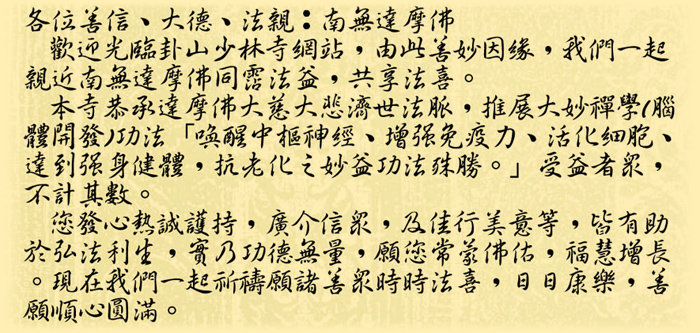 各位善信、大德、法親：南無達摩佛
歡迎光臨卦山少林寺網站，由此善妙因緣，我們一起
親近南無達摩佛同霑法益，共享法喜。
本寺恭承達摩佛大慈大悲濟世法脈，推展大妙禪學(腦
體開發)功法「喚醒中樞神經、增强免疫力、活化細胞、
達到强身健體，抗老化之妙益功法殊勝。」受益者眾，
不計其數。
您發心熱誠護持，廣介信眾，及佳行美意等，皆有助
於弘法利生，實乃功德無量，願您常蒙佛佑，福慧增長
。現在我們一起祈禱願諸善眾時時法喜，日日康樂，善
願順心圓滿。